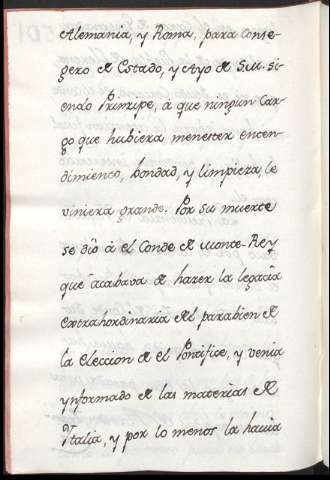 Alemania, y Roma, para conse-
gero de Estado, y Ayo de Su M. si-
endo Prinzipe, à que ningun car-
go que hubiera menester enten-
dimiento, bondad, y limpieza, le
viniera grande. Por su muerte
se diò à el Conde de Monte-Rey
que acabava de hazer la legacia
extrahordinaria del parabien de
la eleccion de el Pontifice, y venia
ynformado de las materias de
Italia, y por lo menos la havia